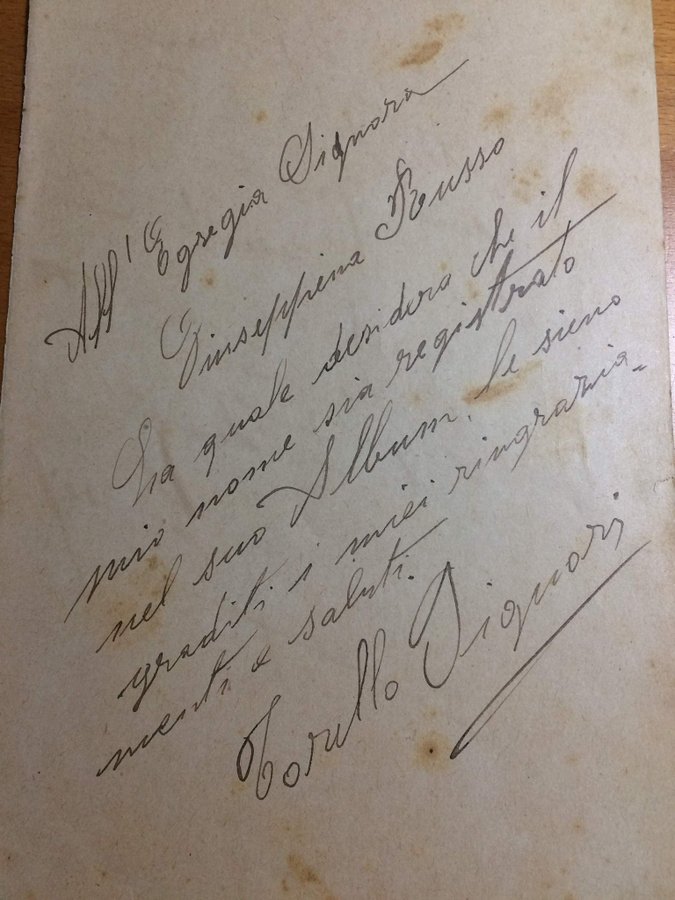 All'Egregia Signora
Giuseppina Russo
La quale desidera che il
mio nome sia registrato
nel suo Album, le sieno
graditi i miei ringrazia-
menti e saluti.
Torello